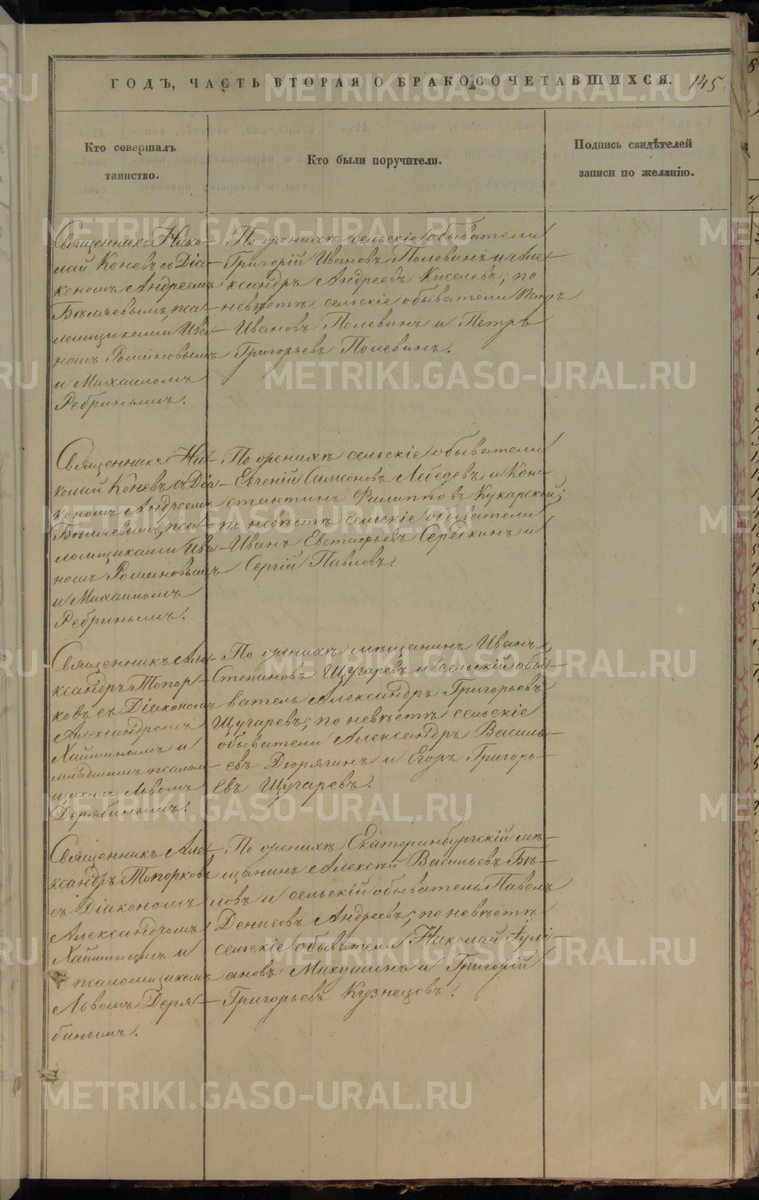 ГОДЪ, ЧАСТЬ ВТОРАЯ О БРАКОСОЧЕТАВШИХСЯ. 145
Кто совершалъ
таинство.
Кто были поручители.
Подпись свидѣтелей
записи по желанію.
Священникъ Нико-
лай Коневъ съ Діа-
кономъ Андреемъ
Бѣляевымъ, пса-
ломщиками Ива-
номъ Романовымъ
и Михаиломъ
Ребринымъ.
По женихѣ сельскіе обыватели
Григорій Ивановъ Половинъ и Але-
ксандръ Андреевъ Киселевъ; по
невѣстѣ сельскіе обыватели Петръ
Ивановъ Полевинъ и Петръ
Григорьевъ Полевинъ.
Священникъ Ни-
колай Коневъ съ Діа-
кономъ Андреемъ
Бѣляевымъ, пса-
ломщиками Ива-
номъ Романовымъ
и Михаиломъ
Ребринымъ.
По женихѣ сельскіе обыватели
Евгеній Самсоновъ Лебедевъ и Кон-
стантинъ Филипповъ Кукарской;
по невѣстѣ сельскіе обыватели
Иванъ Евстафьевъ и
Сергій Павловъ.
Священникъ Але-
ксандръ Топор-
ковъ съ Діакономъ
Александромъ
Хайминымъ и
младшимъ псалом-
щикомъ Львомъ
Дерябинымъ.
По женихѣ мѣщанинъ Иванъ
Степановъ Щугаревъ и сельскій обы-
ватель Александръ Григорьевъ
Щугаревъ; по невѣстѣ сельскіе
обыватели Александръ Василь-
евъ Дюрягинъ и Егоръ Григорь-
евъ Щугаревъ.
Священникъ Але-
ксандръ Топорковъ
съ Діакономъ
Александромъ
Хайминымъ и
псаломщикомъ
Львомъ Деря-
бинымъ.
По женихѣ Екатеринбургскій мѣ-
щанинъ Алексѣй Васильевъ Бы-
ловъ и сельскій обыватель Павелъ
Денисовъ Андреевъ; по невѣстѣ
сельскіе обыватели Николай Іулі-
ановъ Макушинъ и Григорій
Григорьевъ Кузнецовъ.
METRIKI.GASO-URAL.RU
METRIKI.GASO-URAL.RU
METRIKI.GASO-URAL.RU
METRIKI.GASO-URAL.RU
METRIKI.GASO-URAL.RU
METRIKI.GASO-URAL.RU
METRIKI.GASO-URAL.RU
METRIKI.GASO-URAL.RU